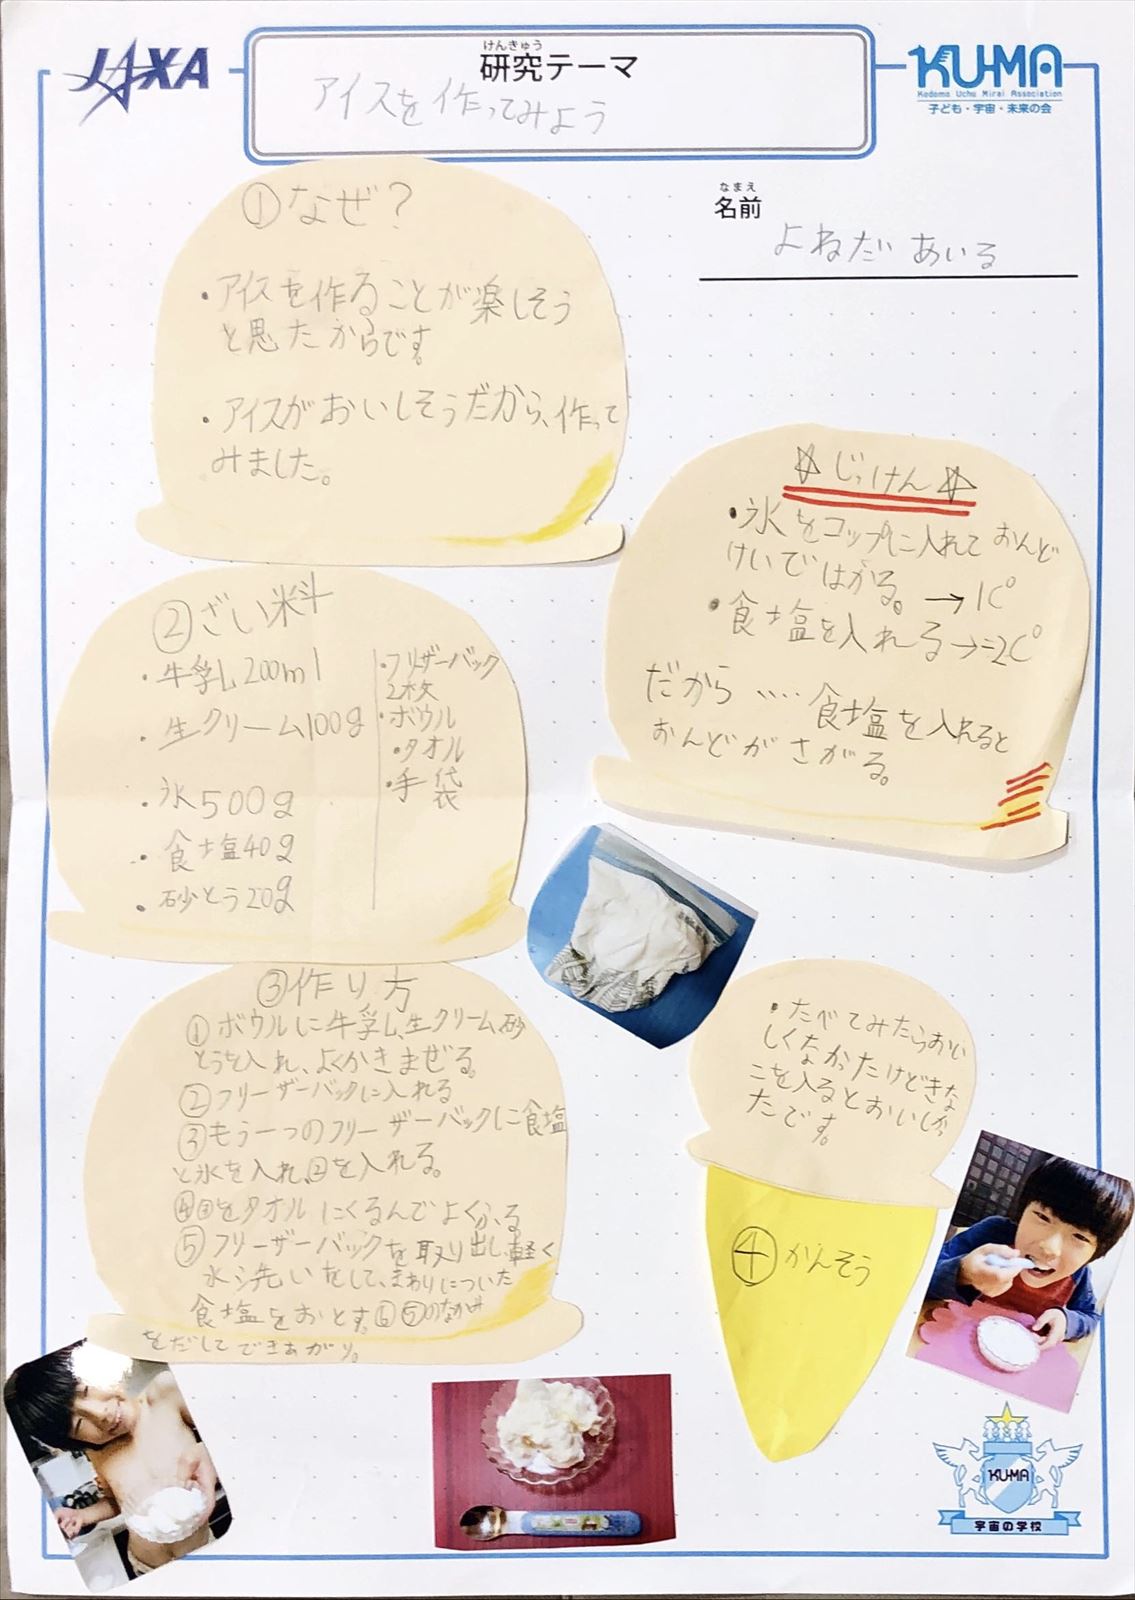 JAXA
けんきゅう
研究テーマ
アイスを作ってみよう
KU-MA
Kodomo Uchu Mirai Association
子ども・宇宙・未来の会
なまえ
名前
よねだ あいる
①なぜ?
・アイスを作ることが楽しそう
と思たからです。
・アイスがおいしそうだから、作って
みました。
☆じっけん☆
・氷をコップに入れておんど
けいではかる。→1C°
・食塩を入れる→=2C°
だから‥‥食塩を入れると
おんどがさがる。
②ざい料
・牛乳200ml
・生クリーム100g
・氷500g
・食塩40g
・砂とう20g
・フリーザーバック
2枚
・ボウル
・タオル
・手袋
③作り方
①ボウルに牛乳、生クリーム、砂
とうを入れ、よくかきまぜる。
②フリーザーバックに入れる
③もう一つのフリーザーバックに食塩
と氷を入れ、②を入れる。
④③をタオルにくるんでよくふる
⑤フリーザーバックを取り出し、軽く
水洗いをして、まわりについた
食塩をおとす。⑥⑤のなかみ
をだしてできあがり。
・たべてみたらおい
しくなかったけどきな
こを入るとおいしかっ
たです。
④かんそう
KU-MA
宇宙の学校